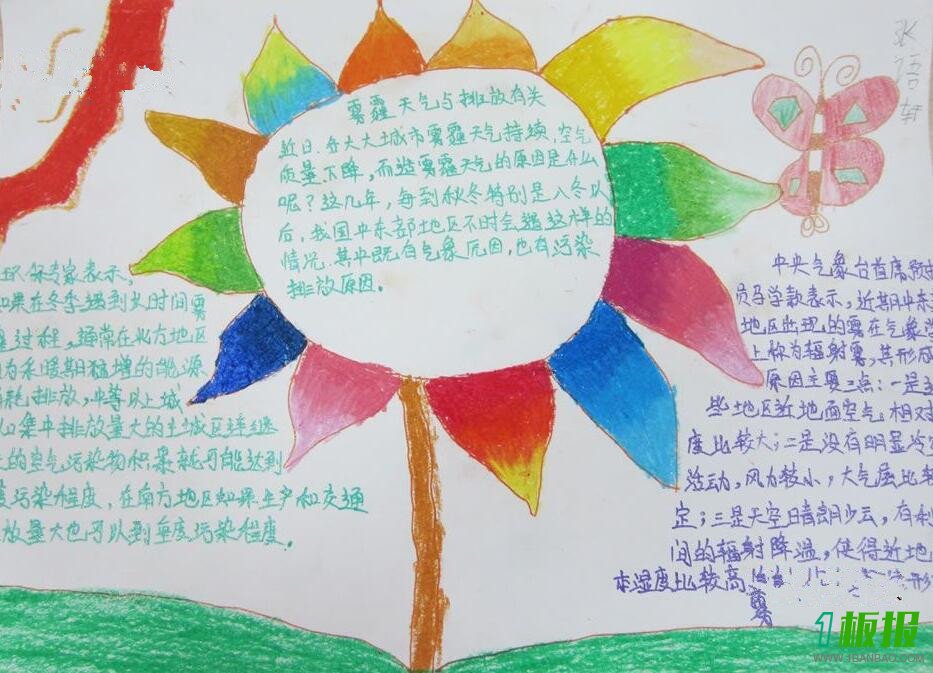 雾霾天气与排放有关
近日,各大大城市雾霾天气持续,空气
质量下降,而造雾霾天气的原因是什么
呢?这几年,每到秋冬特别是入冬以
后,我国中东部地区不时会遇这样的
情况,其中既有气象原因,也有污染
排放原因。
环保专家表示,
如果在冬季遇到长时间雾
霾过程,通常在北方地区
因为采暖期猛增的能源
消耗排放,中等以上城
集中排放量大的主城区连续
的空气污染物积累就可能达到
度污染程度,在南方地区如果生产和交通
放量大也可以到重度污染程度。
张语轩
中央气象台首席预报
员马学款表示,近期中东
地区出现的雾在气象学
上称为辐射雾,其形成
原因主要三点:一是这
些地区近地面空气相对
度比较大;二是没有明显冷空
活动,风力较小,大气层比较
定;三是天空晴朗少云,有利
间的辐射降温,使得近地
本湿度比较高
形
雾
1板报
WWW.1BANBAO.COM